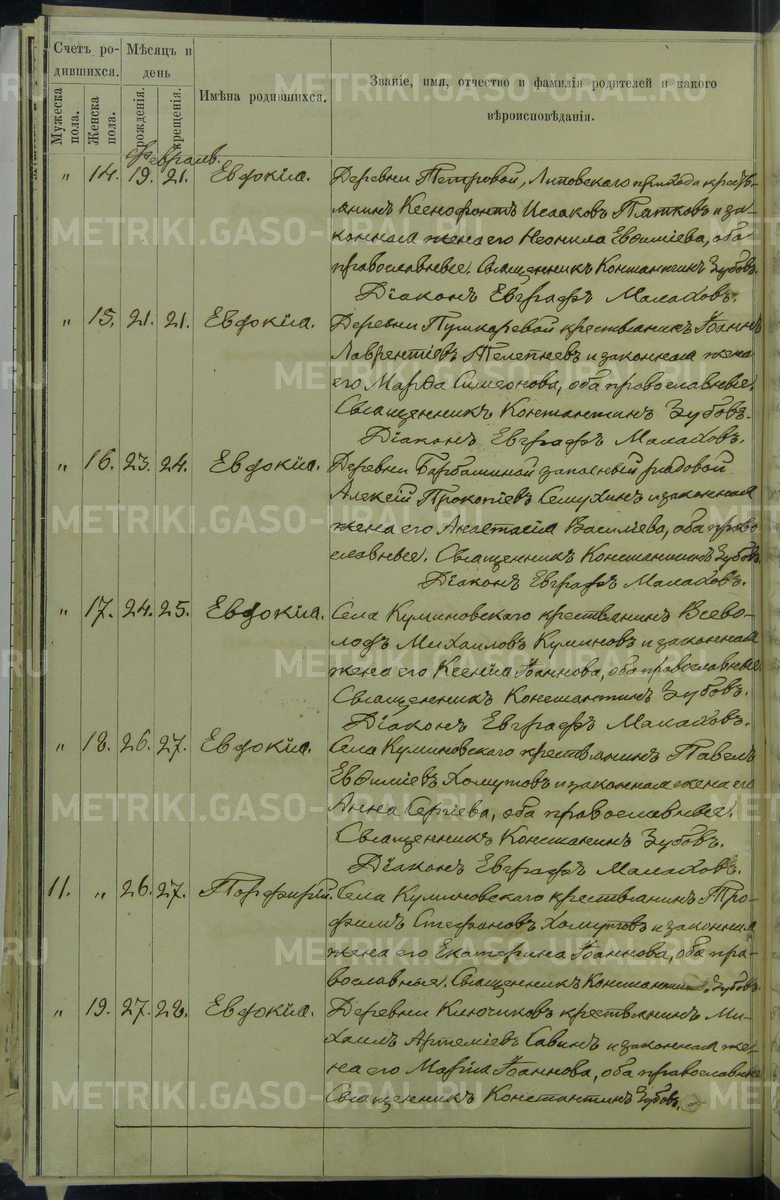 Счетъ ро-
дившихся.
Мѣсяцъ и
день
Мужеска
пола.
Женска
пола.
рожденія.
крещенія.
Имѣна родившихся.
Званіе, имя, отчество и фамилія родителей и какого
вѣроисповѣданія.
Февраль.
" 14. 19. 21. Евдокіа. Деревни Петровой, Липовскаго прихода кресть-
янинъ Ксенофонтъ Исааковъ Пятковъ и за-
конная жена его Неонила Евѳиміева, оба
православные. Священникъ Константинъ Зубовъ.
Діаконъ Евграфъ Малаховъ.
" 15. 21. 21. Евдокіа. Деревни Пушкаревой крестьянинъ Іоаннъ
Лаврентіевъ Телепневъ и законная жена
его Марѳа Симеонова, оба православные.
Священникъ Константинъ Зубовъ.
Діаконъ Евграфъ Малаховъ.
" 16. 23. 24. Евдокіа. Деревни запасный рядовой
Алексій Прокопіевъ Семухинъ и законная
жена его Анастасіа Василіева, оба право
славные. Священникъ Константинъ Зубовъ.
Діаконъ Евграфъ Малаховъ.
" 17. 24. 25. Евдокіа. Села Куминовскаго крестьянинъ Всево-
лодъ Михаиловъ Куминовъ и законная
жена его Ксеніа Іоаннова, оба православные.
Священникъ Константинъ Зубовъ.
Діаконъ Евграфъ Малаховъ.
" 18. 26. 27. Евдокіа. Села Куминовскаго крестьянинъ Павелъ
Евѳиміевъ Хомутовъ и законная жена его
Анна Сергіева, оба православные.
Священникъ Констанинъ Зубовъ.
Діаконъ Евграфъ Малаховъ.
11. " 26. 27. Порфирій. Села Куминовскаго крестьянинъ Тро-
фимъ Стефановъ Хомутовъ и законная
жена его Екатерина Іоаннова, оба пра-
вославные. Священникъ Константинъ Зубовъ.
" 19. 27. 28. Евдокіа. Деревни Ключиковъ крестьянинъ Ми-
хаилъ Артеміевъ Савинъ и законная же-
на его Маріа Іоаннова, оба православные
Священникъ Константинъ Зубовъ.
METRIKI.GASO-URAL.RU